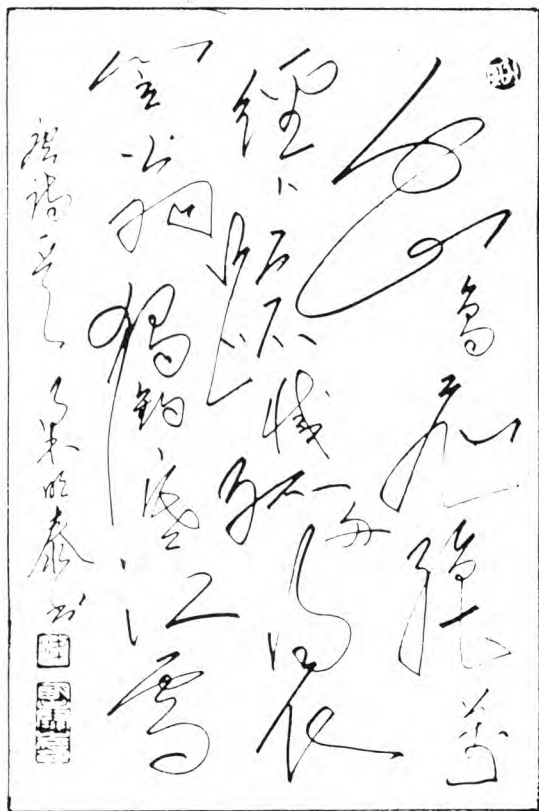 千山鳥飛絕萬
徑人蹤滅孤舟蓑
笠翁獨釣寒江雪
唐詩 明泰书